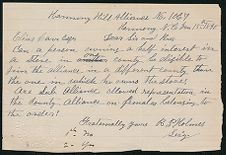 Harmony Hill Alliance No 1037
Harmony N.C. Jan 15th 1891
Elias Carr Esqr Dear Sir and Bro
Can a person owning a half interest in
a store in another county be eligible to
join the alliance in a different county than
the one in which he owns the store
Are Sub Alliance allowed representation in
the County Alliance on females belonging to
the order
Fraternally yours
1st No
2 Yes